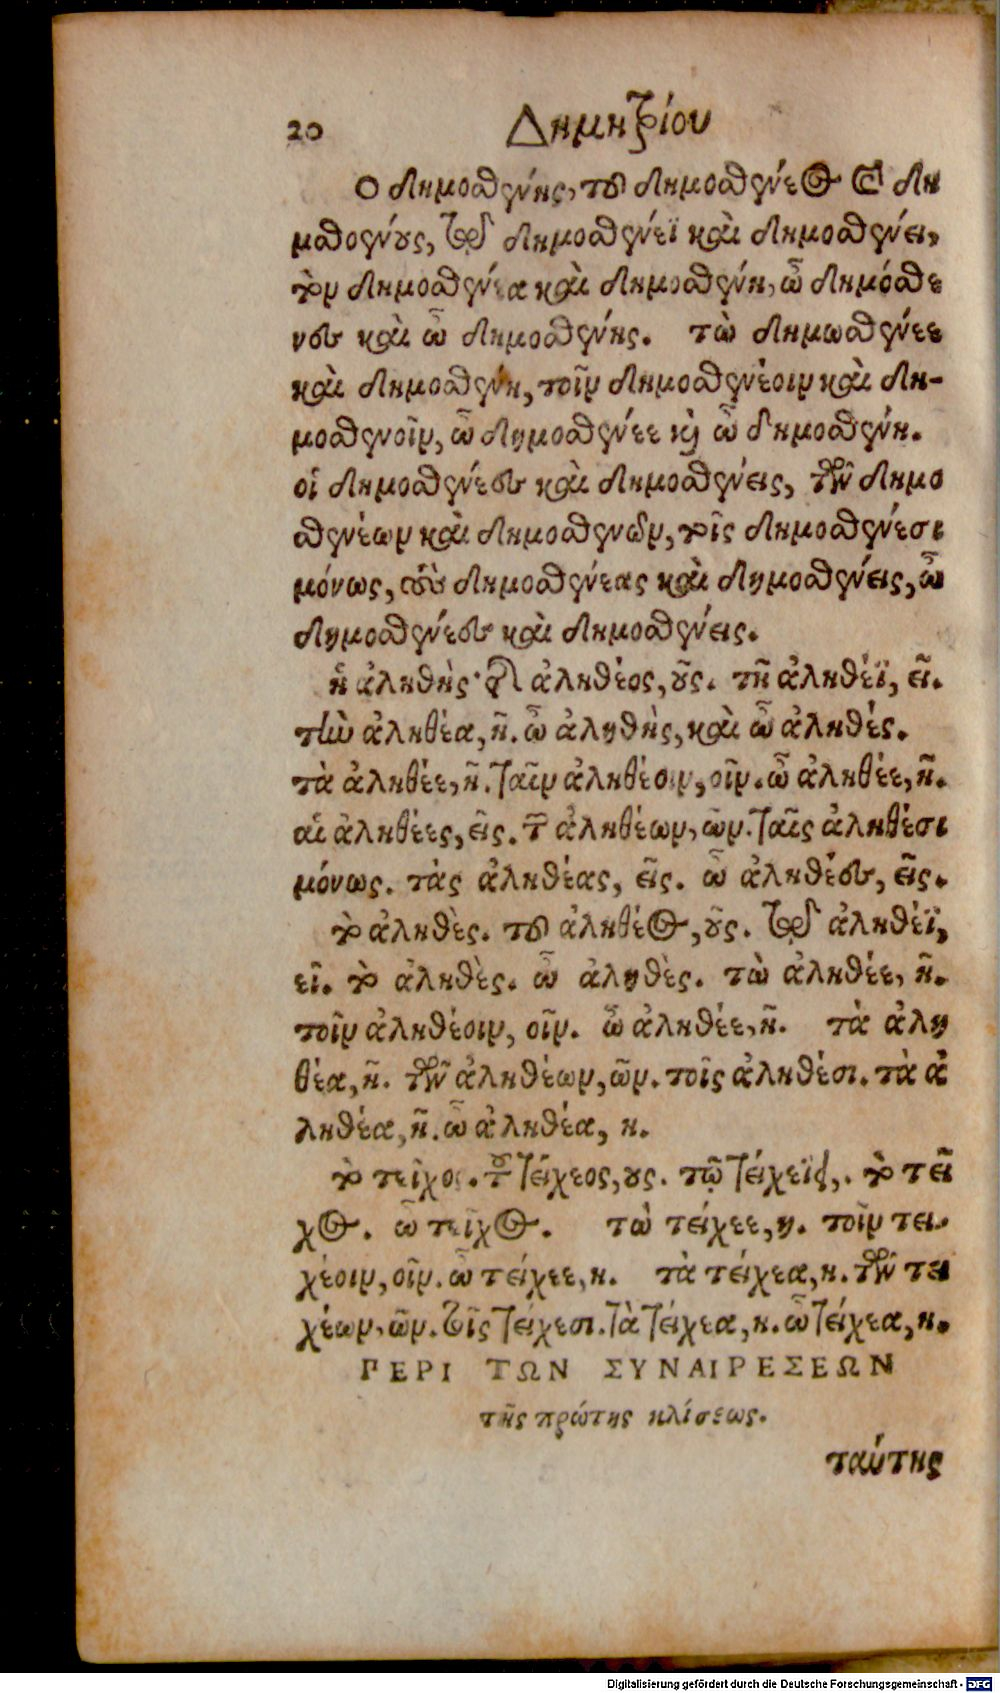 20 Δημητρίου
Ο δημοσθένης, τοῦ δημοσθένεος καὶ δη
μοσθένους, τῷ δημοσθένεϊ καὶ δημοσθένει,
τὸν δημοσθένεα καὶ δημοσθένη, ὦ δημόσθε
νες καὶ ὦ δημοσθένης. τὼ δημωσθένεε
καὶ δημοσθένη, τοῖν δημοσθενέοιν καὶ δη-
μοσθενοῖν, ὦ δημοσθένεε καὶ ὦ δημοσθένη.
οἱ δημοσθένεες καὶ δημοσθένεις, τῶν δημο
σθενέων καὶ δημοσθενῶν, τοῖς δημοσθένεσι
μόνως, τοὺς δημοσθένεας καὶ δημοσθένεις, ὦ
δημοσθένεες καὶ δημοσθένεις.
ἡ ἀληθὴς· τῆς ἀληθέος, οῦς. τῆ ἀληθέϊ, εῖ.
τὴν ἀληθέα, ῆ. ὦ ἀληθὴς, καὶ ὦ ἀληθές.
τὰ ἀληθέε, ῆ. ταῖν ἀληθέοιν, οῖν. ὦ ἀληθέε, ῆ.
αἱ ἀληθέες, εῖς. τῶν ἀληθέων, ῶν. ταῖς ἀληθέσι
μόνως. τὰς ἀληθέας, εῖς. ὦ ἀληθέες, εῖς.
τὸ ἀληθὲς. τοῦ ἀληθέος, οῦς. τῷ ἀληθέϊ,
εῖ. τὸ ἀληθὲς. ὦ ἀληθὲς. τὼ ἀληθέε, ῆ.
τοῖν ἀληθέοιν, οῖν. ὦ ἀληθέε, ῆ. τὰ ἀλη
θέα, ῆ. τῶν ἀληθέων, ῶν. τοῖς ἀληθέσι. τὰ ἀ
ληθέα, ῆ. ὦ ἀληθέα, η.
τὸ τεῖχος. τοῦ τείχεος, ους. τῷ τείχεϊ, τὸ τεῖ
χος. ὦ τεῖχος. τὼ τείχεε, η. τοῖν τει-
χέοιν, οῖν. ὦ τείχεε, η. τὰ τείχεα, η. τῶν τει
χέων, ῶν. τοῖς τείχεσι. τὰ τείχεα, η. ὦ τείχεα, η.
ΠΕΡΙ ΤΩΝ ΣΥΝΑΙΡΕΣΕΩΝ
τῆς πρώτης κλίσεως.
ταύτης
Digitalisierung gefördert durch die Deutsche Forschungsgemeinschaft - DFG